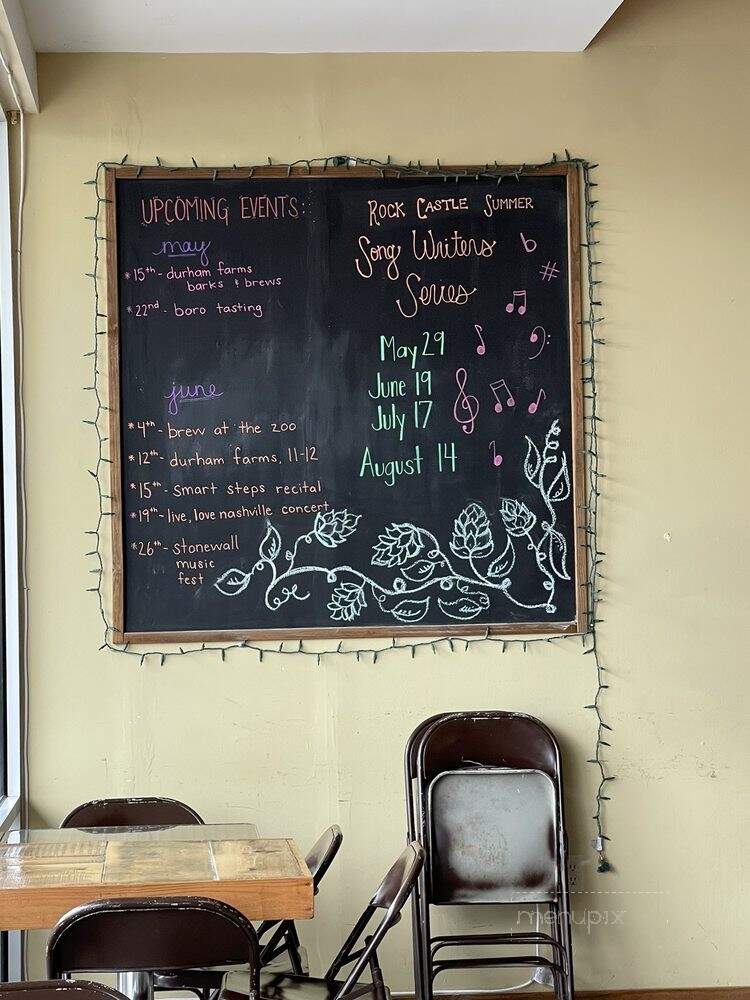 UPCOMING EVENTS:
may
*15th - durham farms
barks & brews
*22nd - boro tasting
june
*4th - brew at the zoo
*12th - durham farms, 11-12
*15th - smart steps recital
*19th - live, love nashville concert
*26th - stonewall
music
fest
ROCK CASTLE SUMMER
Song Writers
Series
May 29
June 19
July 17
August 14
menupix